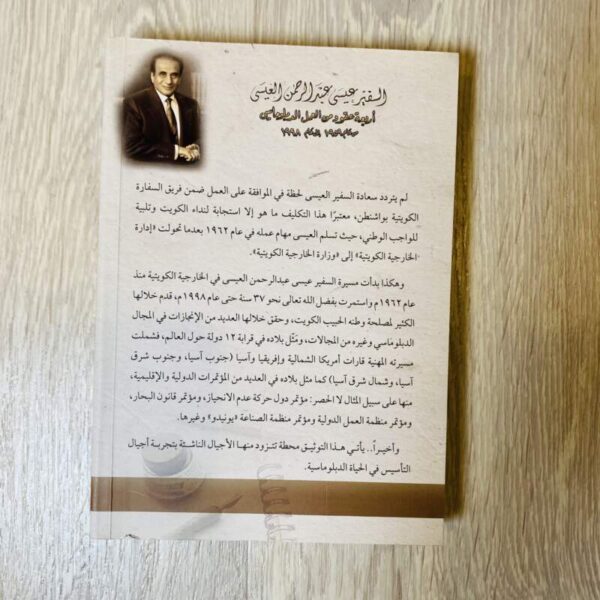 السفير عيسى عبدالرحمن العيسى
أربعة عقود من العمل الدبلوماسي
من عام ١٩٥٩ إلى عام ١٩٩٨
لم يتردد سعادة السفير العيسى لحظة في الموافقة على العمل ضمن فريق السفارة
الكويتية بواشنطن، معتبرًا هذا التكليف ما هو إلا استجابة لنداء الكويت وتلبية
للواجب الوطني، حيث تسلم العيسى مهام عمله في عام ١٩٦٢ بعدما تحولت «إدارة
الخارجية الكويتية» إلى «وزارة الخارجية الكويتية».
وهكذا بدأت مسيرة السفير عيسى عبدالرحمن العيسى في الخارجية الكويتية منذ
عام ١٩٦٢م واستمرت بفضل الله تعالى نحو ٣٧ سنة حتى عام ١٩٩٨م، قدم خلالها
الكثير لمصلحة وطنه الحبيب الكويت، وحقق خلالها العديد من الإنجازات في المجال
الدبلوماسي وغيره من المجالات، ومثّل بلاده في قرابة ١٢ دولة حول العالم، فشملت
مسيرته المهنية قارات أمريكا الشمالية وإفريقيا وآسيا (جنوب آسيا، وجنوب شرق
آسيا، وشمال شرق آسيا) كما مثل بلاده في العديد من المؤتمرات الدولية والإقليمية،
منها على سبيل المثال لا الحصر: مؤتمر دول حركة عدم الانحياز، ومؤتمر قانون البحار،
ومؤتمر منظمة العمل الدولية ومؤتمر منظمة الصناعة «يونيدو» وغيرها.
وأخيـراً.. يأتـي هـذا التوثيـق محطة تتـزود منهـا الأجيال الناشـئة بتجربـة أجيال
التأسيس في الحياة الدبلوماسية.